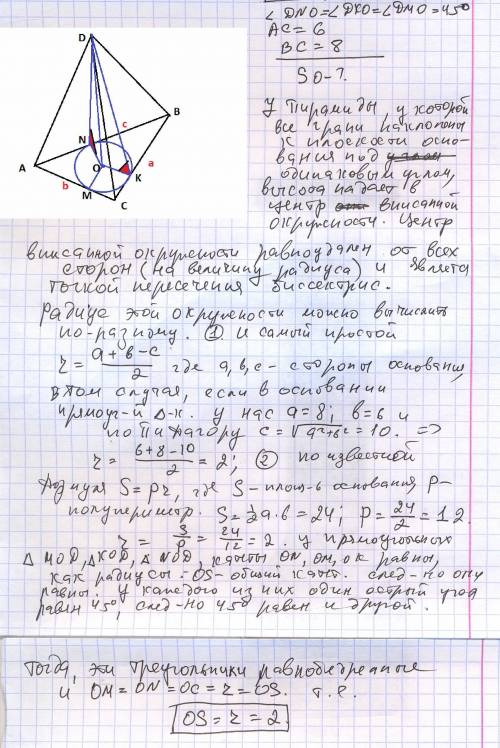 ∠DNO=∠DKO=∠DMO=45°
AC=6
BC=8
SO-?
D
B
N
c
A
O
a
K
b
M
C
У пирамиды у которой
все грани наклонены
к плоскости осно-
вания под
одинаковым углом,
высота падает в
центр вписанной
окружности. Центр
вписанной окружности равноудален от всех
сторон (на величину радиуса) и является
точкой пересечения биссектрис.
Радиус этой окружности можно вычислить
по-разному. ① и самый простой
r = (a+b-c)/2 где a, b, c - стороны основания,
в том случае, если в основании
прямоуг-й Δ-к. У нас a=8; b=6 и
по Пифагору c=√(a²+b²)=10. =>
r = (6+8-10)/2 = 2; ② по известной
формуле S=pr, где S-площ-ь основания p-
полупериметр. S=½a·b=24; p=24/2=12.
r = S/p = 24/12 = 2. У прямоугольных
Δ MOD, Δ KOD, Δ NOD, катеты ON, OM, OK равны,
как радиусы. OS-общий кат. след-но они
равны. У каждого из них один острый угол
равен 45°, след-но 45° равен и другой.
Тогда, эти треугольники равнобедренные
и OM=ON=OC=r=OS. т.е.
OS=r=2.